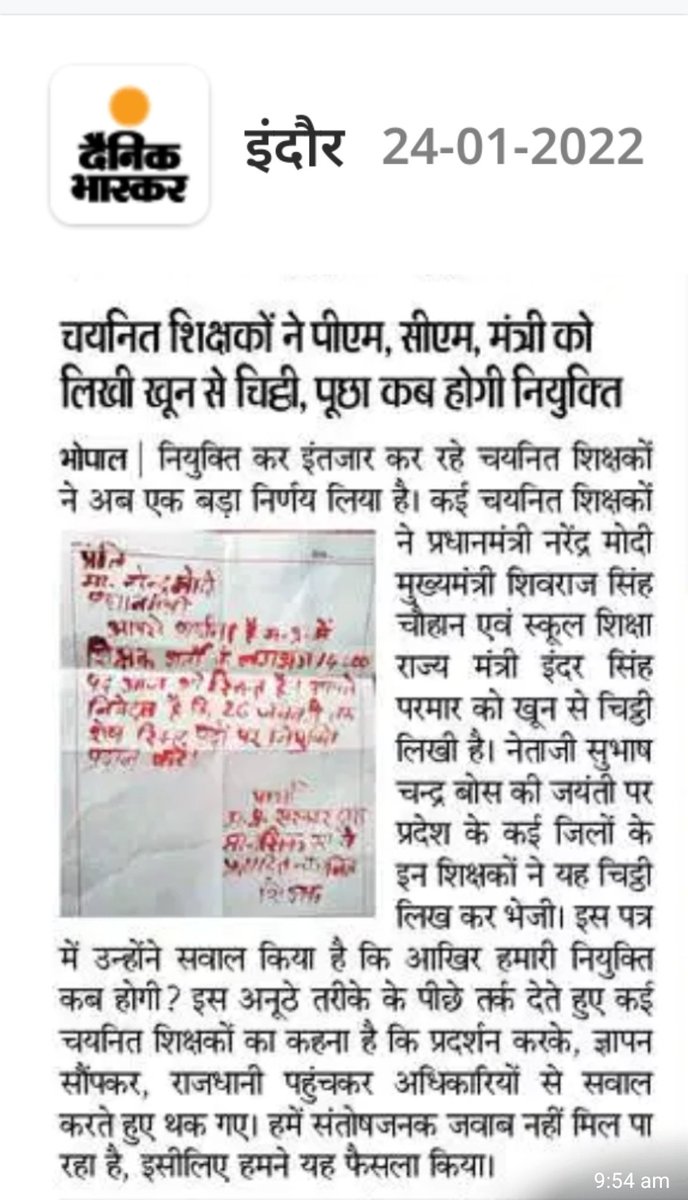 दैनिक
भास्कर
इंदौर 24-01-2022
चयनित शिक्षकों ने पीएम, सीएम, मंत्री को
लिखी खून से चिट्ठी, पूछा कब होगी नियुक्ति
भोपाल | नियुक्ति कर इंतजार कर रहे चयनित शिक्षकों
ने अब एक बड़ा निर्णय लिया है। कई चयनित शिक्षकों
ने प्रधानमंत्री नरेंद्र मोदी
मुख्यमंत्री शिवराज सिंह
चौहान एवं स्कूल शिक्षा
राज्य मंत्री इंदर सिंह
परमार को खून से चिट्ठी
लिखी है। नेताजी सुभाष
चन्द्र बोस की जयंती पर
प्रदेश के कई जिलों के
इन शिक्षकों ने यह चिट्ठी
लिख कर भेजी। इस पत्र
में उन्होंने सवाल किया है कि आखिर हमारी नियुक्ति
कब होगी? इस अनूठे तरीके के पीछे तर्क देते हुए कई
चयनित शिक्षकों का कहना है कि प्रदर्शन करके, ज्ञापन
सौंपकर, राजधानी पहुंचकर अधिकारियों से सवाल
करते हुए थक गए। हमें संतोषजनक जवाब नहीं मिल पा
रहा है, इसीलिए हमने यह फैसला किया।
प्रति
मा. मोदी
है म.प्र. में
शिक्षक भर्ती
पद आज भी रिक्त है।
निवेदन है कि 26
शेष रिक्त पदों पर नियुक्ति
प्रदान करे।
9:54 am